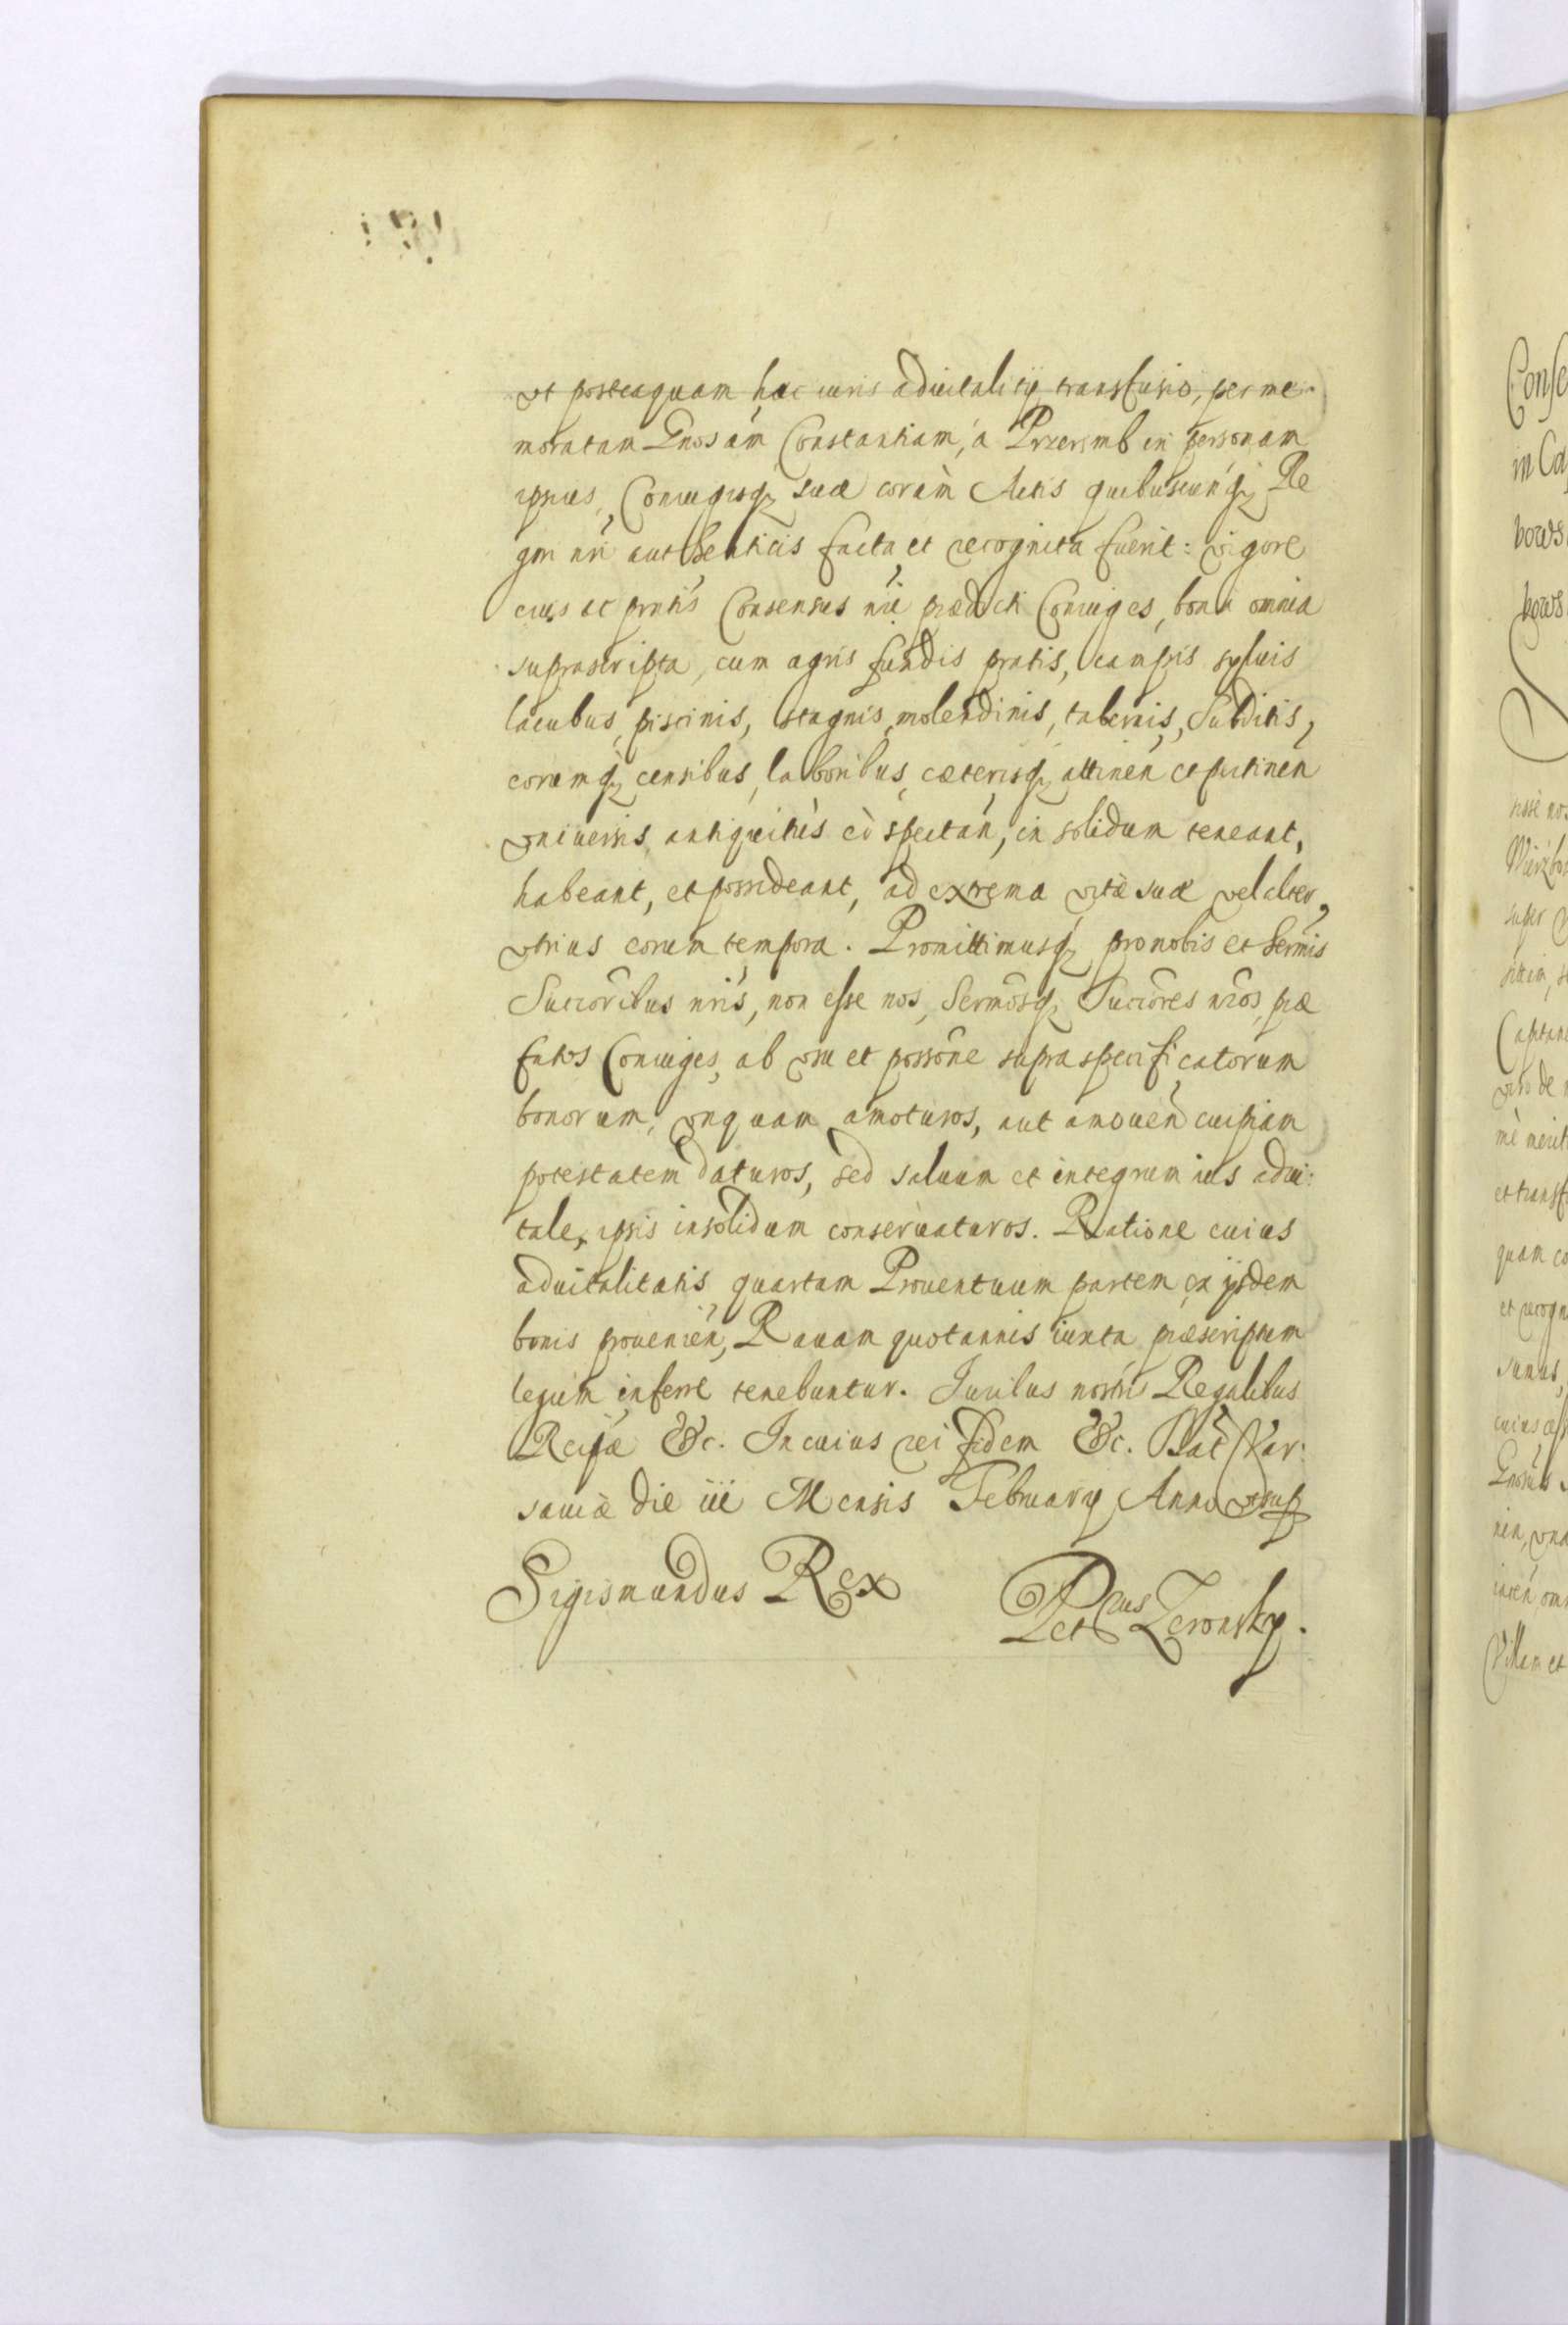 vt posteaquam hac iuris aduitalitij transfusio, per me-
moratam Gnosam Constantiam, a Przeremb in personam
ipsius, Coniugisq; suæ coram Actis quibuscunq; Re
gni nri authenticis facta et recognita fuerit: vigore
eius ac pntis Consensus nri prædicti Coniuges, bona omnia
suprascripta, cum agris fundis pratis, campis syluis
lacubus, piscinis, stagnis, molendinis, tabernis, Subditis,
eorumq; censibus, laboribus, cæterisq; attinen et ptinen
vniuersis, antiquitùs eò spectan, in solidum teneant,
habeant, et possideant, ad extrema vitæ suæ vel alter,
vtrius eorum tempora. Promittimusq; pro nobis et Sermis
Succoribus nris, non esse nos, Sermosq; Succores nros, præ
fatos Coniuges, ab vsu et possone supraspecificatorum
bonorum, vnquam amoturos, aut amouen cuipiam
potestatem daturos, sed saluum et integrum ius adui:
tale, ipsis insolidum conseruaturos. Ratione cuius
aduitalitatis quartam Prouentuum partem ex ijsdem
bonis prouenien, Rauam quotannis iuxta præscriptum
legum inferre tenebuntur. Iuribus nostris Regalibus
Reipæ &c. In cuius rei fidem &c. Dat Var:
sauiæ die iii Mensis February Anno vt sup
Sigismundus Rex
Petrus Zeronsky.
Conse
in Ca
bows
kows
super
et transf
quam co
et recogn
Villam et